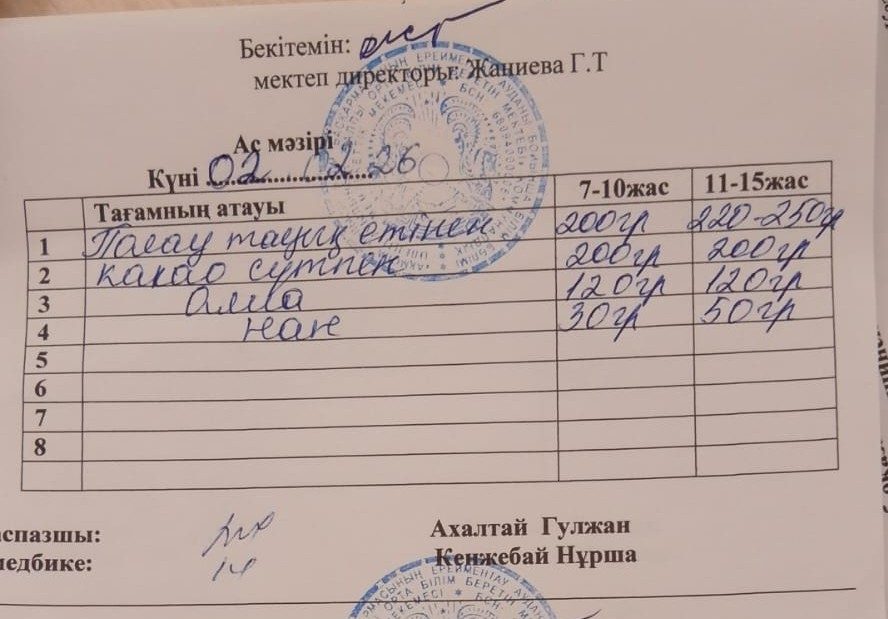 Бекітемін:
мектеп директоры: Жаниева Г.Т
Ас мәзірі
Күні 02.02.26
Тағамның атауы 7-10жас 11-15жас
1 Палау тауық етінен 200гр 220-250гр
2 какао сүтпен 200гр 200гр
3 Алма 120гр 120гр
4 нан 30гр 50гр
5
6
7
8
аспазшы: Ахалтай Гулжан
медбике: Кенжебай Нұрша